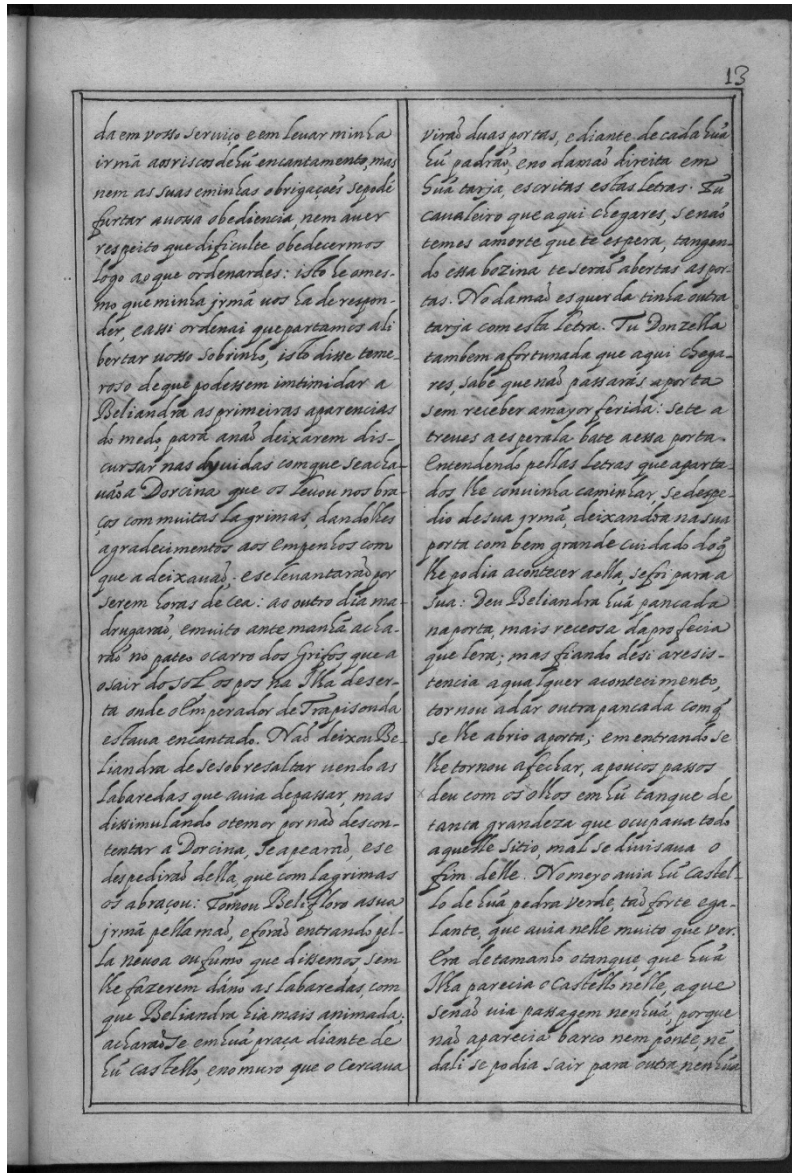 13
da em vosso seruiço e em leuar minha
irmã aos riscos de hũ encantamento, mas
nem as suas e minhas obrigações se pode
furtar a vossa obediencia nem auer
respeito que dificulte obedecermos
logo ao que ordenardes: isto he o mes-
mo que minha jrmã uos ha de respon-
der, e assi ordenai que partamos a li
bertar vosso sobrinho, isto disse teme-
roso de que podessem imtimidar a
Beliandra as primeiras aparencias
do medo, para a naõ deixarem dis-
cursar nas duuidas com que se acha-
uaõ a Dorcina que os leuou nos bra-
ços com muitas lagrimas, dandolhes
agradecimentos aos empenhos com
que a deixauaõ, e se leuantaraõ por
serem horas de cea: ao outro dia ma-
drugaraõ, e muito ante manhã acha-
raõ no pateo o carro dos Grifos que a
o sair do sol os pos na Ilha deser-
ta onde o Emperador de Trapisonda
estaua encantado. Naõ deixou Be-
liandra de se sobresaltar uendo as
labaredas que auia de passar, mas
dissimulando o temor por naõ descon-
tentar a Dorcina, se apearaõ, e se
despediraõ della, que com lagrimas
os abraçou: Tomou Belifloro a sua
jrmã pella maõ, e foraõ entrando pel-
la neuoa ou fumo que dissemos, sem
lhe fazerem dáno as labaredas, com
que Beliandra hia mais animada;
acharaõ se em huã praça diante de
hũ castello, e no muro que o cercaua
viraõ duas portas, e diante de cada huã
hũ padraõ, e no da maõ direita em
huã tarja, escritas estas letras. Tu
caualeiro que aqui chegares, se naõ
temes a morte que te espera, tangen-
do essa bozina te seraõ abertas as por-
tas. No da maõ esquerda tinha outra
tarja com esta letra. Tu Donzella
tambem afortunada que aqui chega-
res, sabe que naõ passarás a porta
sem receber a mayor ferida: se te a
treues a esperala bate a essa porta.
Entendendo pellas letras que aparta-
dos lhe convinha caminhar, se despe-
dio de sua jrmã, deixandoa na sua
porta com bem grande cuidado do q̃
lhe podia acontecer a ella, se foi para a
sua: Deu Beliandra huã pancada
na porta, mais receosa da profecia
que lera; mas fiando de si a resis-
tencia a qualquer acontecimento,
tornou a dar outra pancada com q̃
se lhe abrio a porta; e m entrando se
lhe tornou a fechar, a poucos passos
deu com os olhos em hũ tanque de
tanta grandeza que ocupaua todo
aquelle sitio, mal se diuisaua o
fim delle. No meyo auia hũ castel-
lo de huã pedra verde, taõ forte e ga-
lante, que auia nelle muito que ver.
Era de tamanho o tanque, que huã
Ilha parecia o Castello nelle, a que
se naõ uia passagem nenhuã, porque
naõ aparecia barco nem ponte, nẽ
dali se podia sair para outra nenhuã